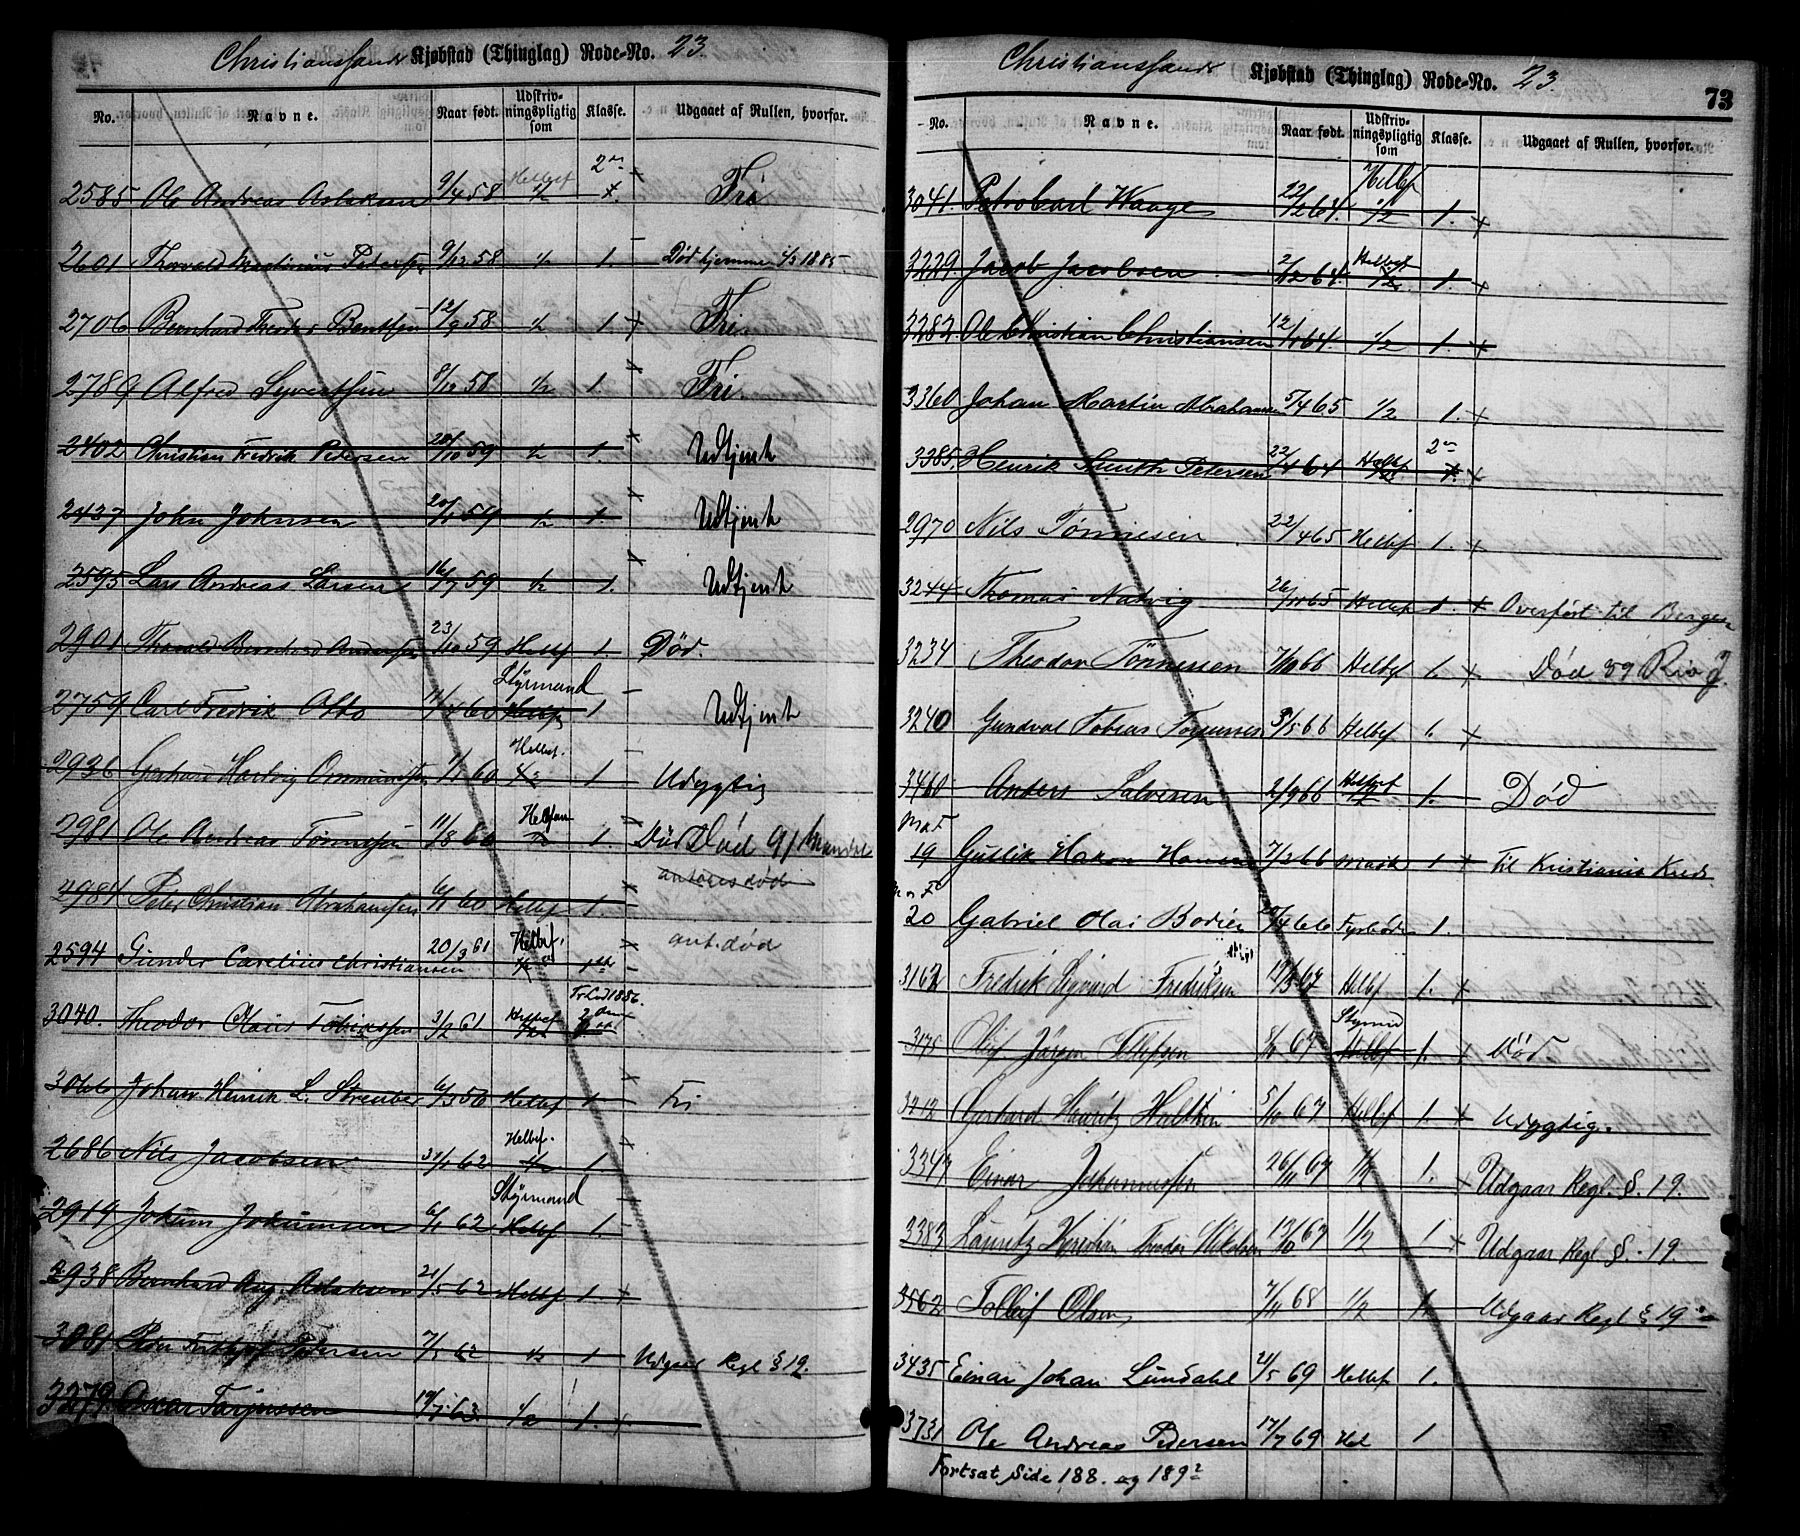 Christianssands Kjøbstad (Thinglag) Rode-No. 23.
No. Navne. Naar født. Udskriv-ningspligtig som Klasse. Udgaaet af Rullen, hvorfor.
2585 Ole Andreas Aslaksen 9/4 58 Helbef 1/2 2den 1. Fri
2601 Thorvald Martinius Pedersen 9/12 58 1/2 1. Død hjemme 1885
2706 Bernhard Theodor Bentsen 12/9 58 1/2 1 Fri
2789 Alfred Syvertsen 8/12 58 1/2 1. Fri
2402 Christian Fredrik Pedersen 28/10 59 1/2 1. Udtjent
2437 John Johnsen 59 1/2 1. Udtjent
2595 Lars Andreas Larsen 16/7 59 1/2 1. Udtjent
2901 Bernhard 23/10 59 Helbef 1. Død.
2759 Carl Fredrik Otto 60 Styrmand Helbef 1 Udtjent
2936 Gerhard Hartvig 60 Helbef. 1/2 1 Udygtig
2981 Ole Andreas Tønnesen 11/8 60 1. Død 91 Mandal
2984 Peter Christian Abrahamsen 60 Helbef 1. antages død
2594 Gunder Carelius Christiansen 20/3 61 Helbef. ant. død
3040. Theodor Olaus Tobiassen 3/2 61 Helbef 1/2
3066 Johan Henrik L. Streuber 6/3 50 Helbef 1 Fri
2686 Nils Jacobsen 62 Helbef. 1/2 1
2919 Jokum Jokumsen 6/1 62 Styrmand Helbef 1.
2938 Bernhard Aug. Aslaksen 21/5 62 Helbef 1.
3081 Pedersen 62 1/2 1 Udgaar Regl. § 19.
3279 Oscar Tarjussen 63 1/2 1.
Christianssands Kjøbstad (Thinglag) Rode-No. 23
73
No. Navne. Naar født. Udskriv-ningspligtig som Klasse. Udgaaet af Rullen, hvorfor.
3041. Carl Waage 22/2 64. Helbef 1/2 1.
3229. Jacob Jacobsen 2/2 64. Helbef 1/2 1.
3282. Ole Christian Christiansen 12/1 64. 1/2 1.
3360 Johan Martin Abrahamsen 5/4 65 1/2 1.
3385. Henrik Smith Petersen 22/4 64 Helbef 2den 1.
2970 Nils Tønnesen 22/4 65 Helbef 1.
3244 Thomas Natvig 26/11 65 Helbef 1. Overført til Bergen
3234 Theodor Tönnessen 7/10 66 Helbef 1. Død 89 Rio J.
3240 Gundval Tobias 3/5 66 Helbef 1.
3460 Anders Salvesen 2/9 66 Helbef 1. Død
M o F 19 Gutlik Hakon Hansen 7/3 66 Mask 1 Til Kristiania Kreds.
M o F 20 Gabriel Olai Bodien 20/4 66 Fyrbøder 1.
3162 Fredrik Sigvard Fredriksen 67 Helbef 1.
3178 Oluf Jørgen 67 Styrmd Helbef 1. Død
3212 Gerhard Mauritz 5/10 67 Helbef 1. Udygtig.
3347 Einar Johannessen 26/11 67 1/2 1. Udgaar Regl. §. 19.
3383 Lauritz Kristian Theodor 17/10 67 1/2 1 Udgaar Regl. §. 19.
3562 Tollef Olsen 7/11 68 1/2 1. Udgaar Regl § 19
3435 Einar Johan Lundahl 21/5 69 Helbef 1.
3731 Ole Andreas Pedersen 17/7 69 Hel 1
Fortsat Side 188. og 189